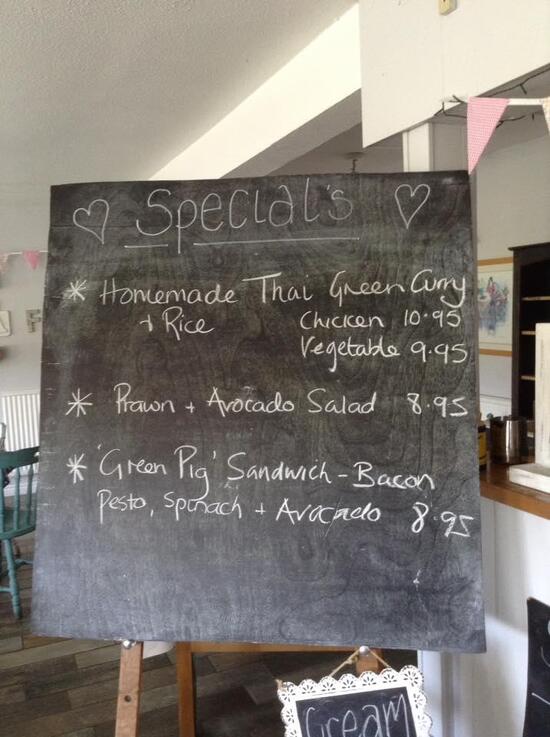 Special's
* Homemade Thai Green Curry
+ Rice Chicken 10.95
Vegetable 9.95
* Prawn + Avocado Salad 8.95
* 'Green Pig' Sandwich - Bacon
Pesto, Spinach + Avocado 8.95
Cream
F